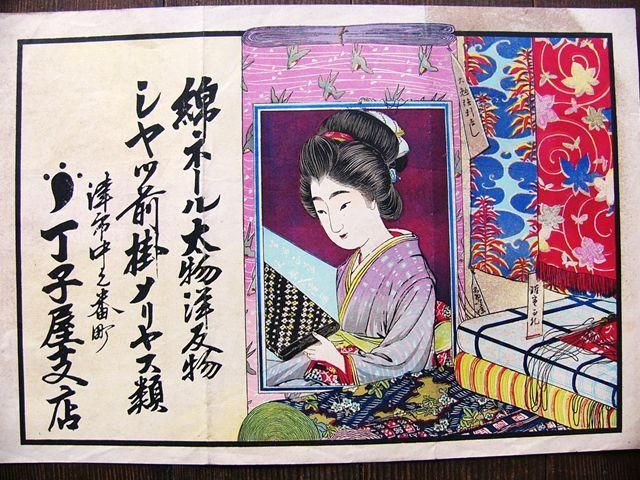 綿ネール太物洋反物
シヤツ前掛メリヤス類
津市中之番町
丁子屋支店